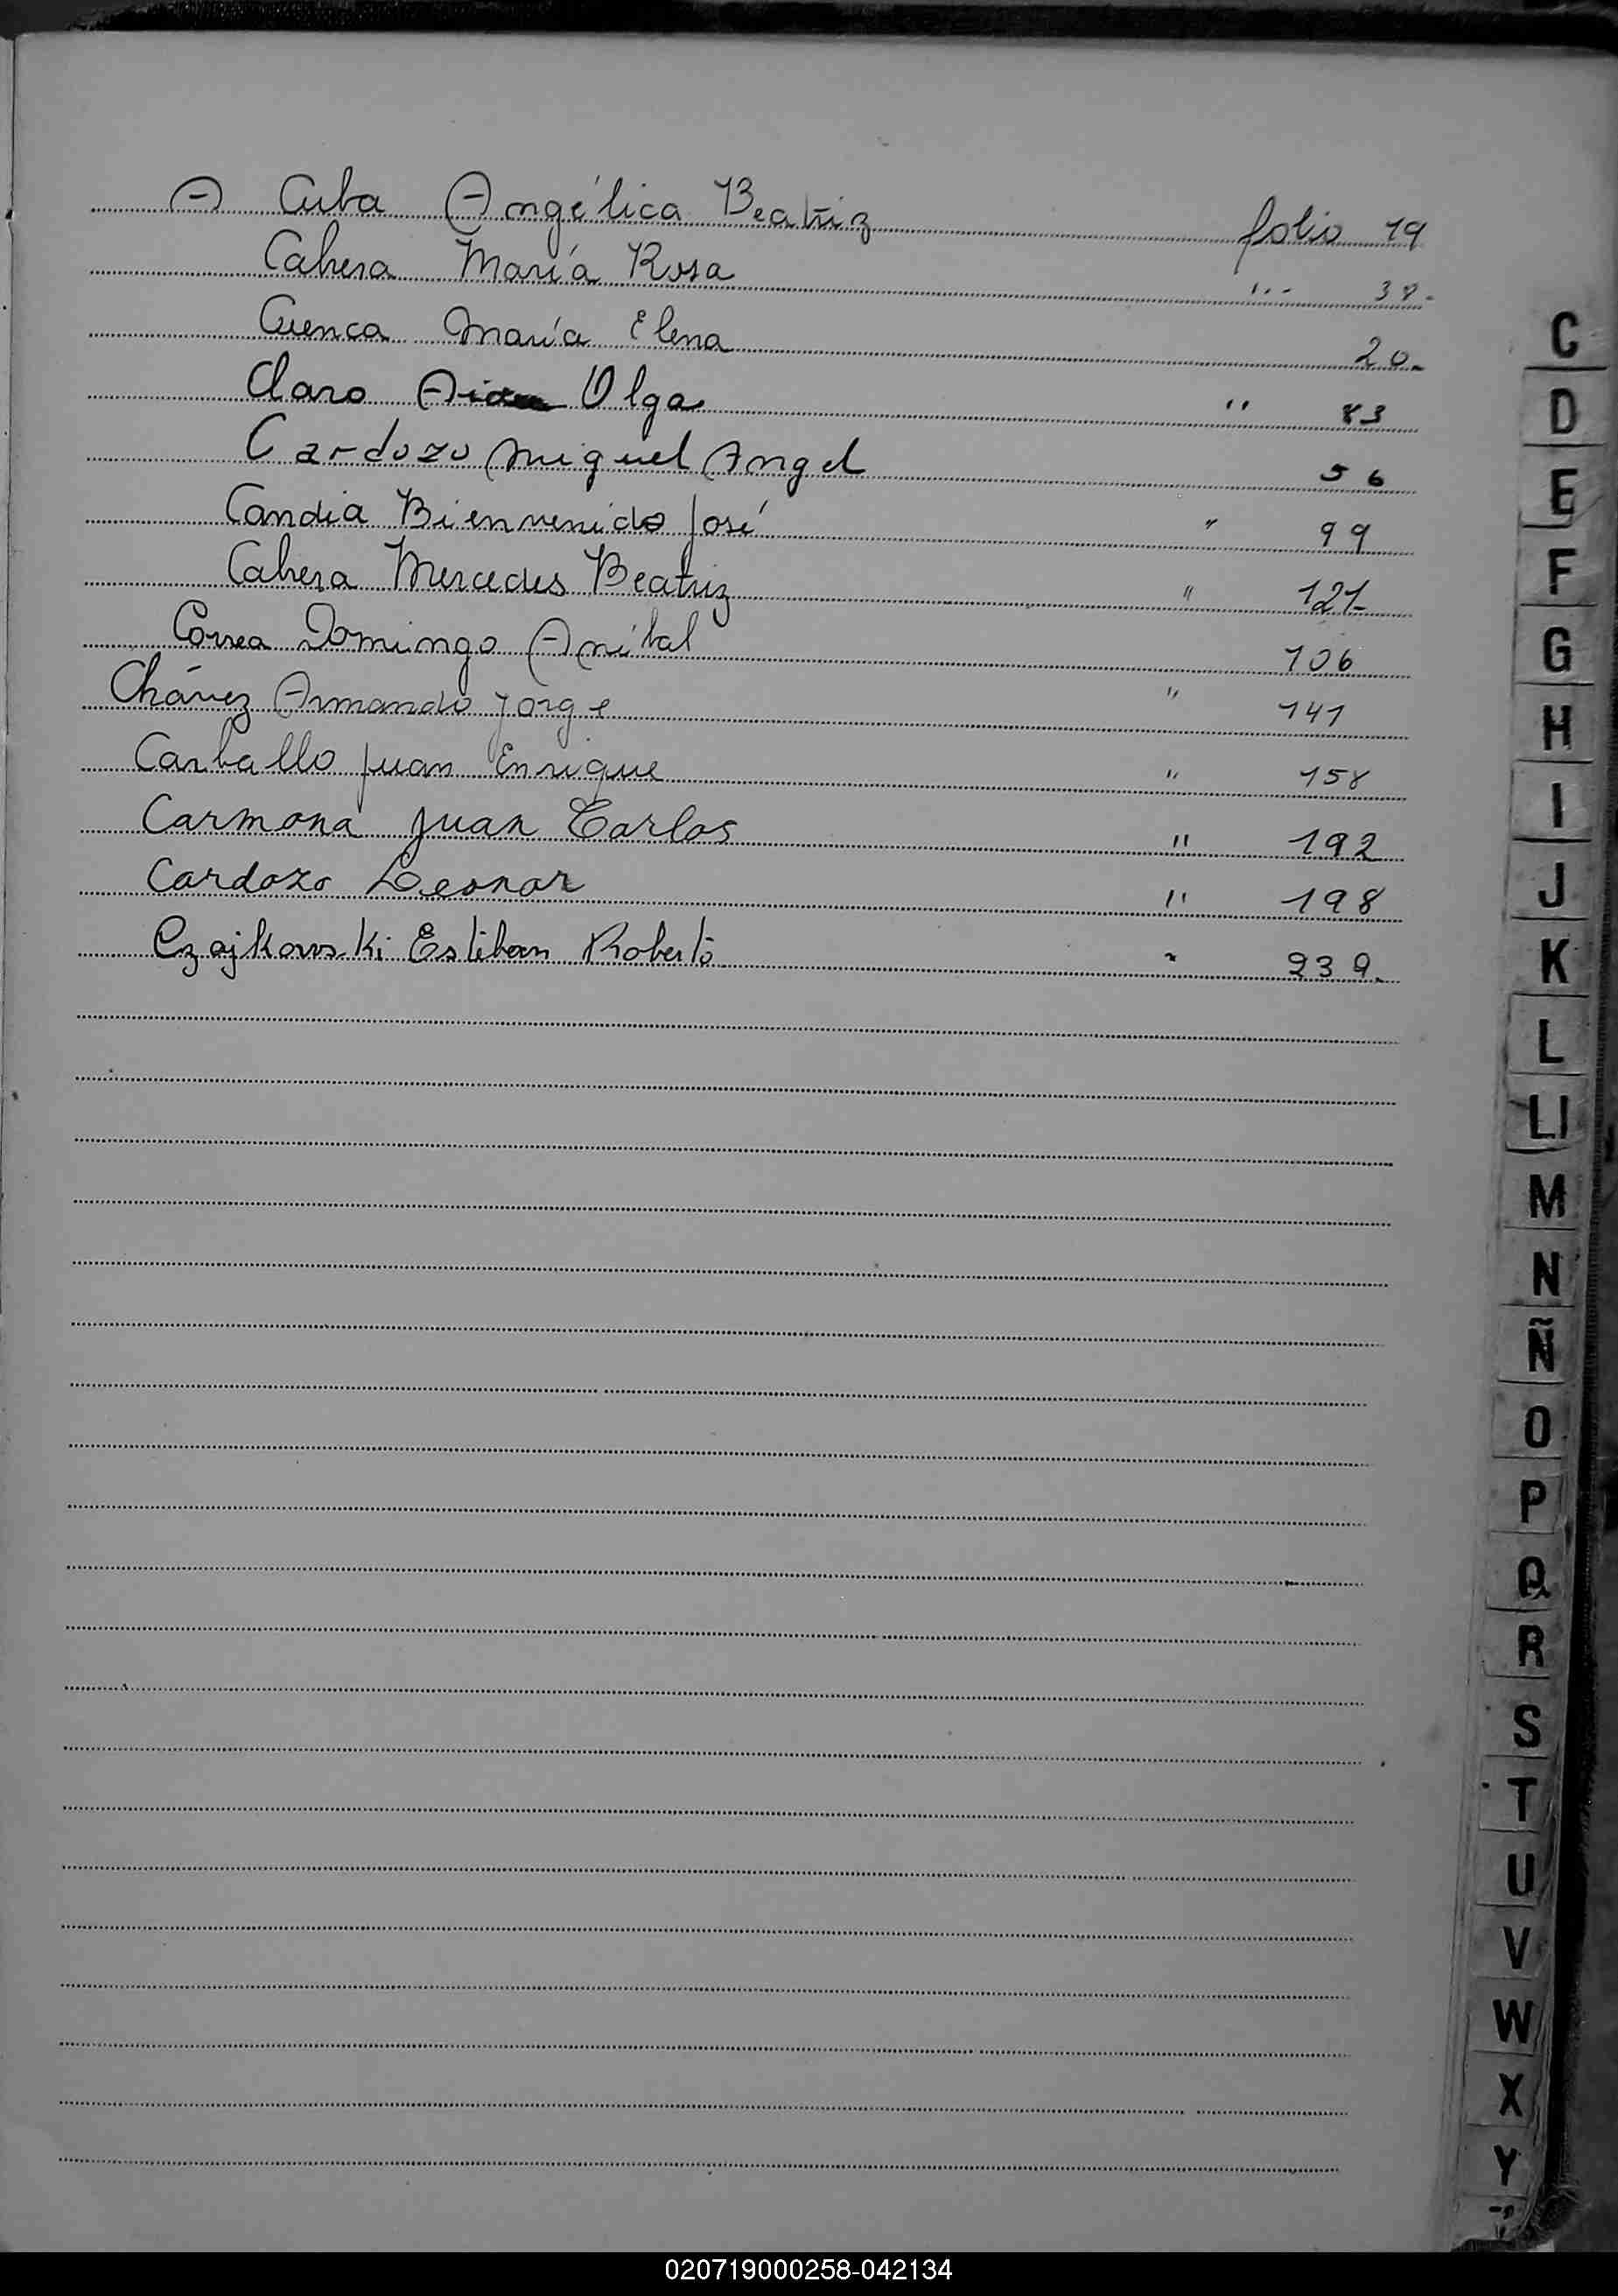 A Cuba Angélica Beatriz folio 19
Cabrera María Rosa " 38.
Cuenca María Elena 20.
Claro Olga " 83
Cardozo Miguel Angel 56
Candia Bienvenido José " 99
Cabrera Mercedes Beatriz " 121-
Correa Domingo Aníbal 106
Chávez Armando Jorge " 141
Carballo Juan Enrique " 158
Carmona Juan Carlos " 192
Cardozo Leonor " 198
Czajkowski Esteban Roberto " 239.
C
D
E
F
G
H
I
J
K
L
Ll
M
N
Ñ
O
P
Q
R
S
T
U
V
W
X
Y
020719000258-042134